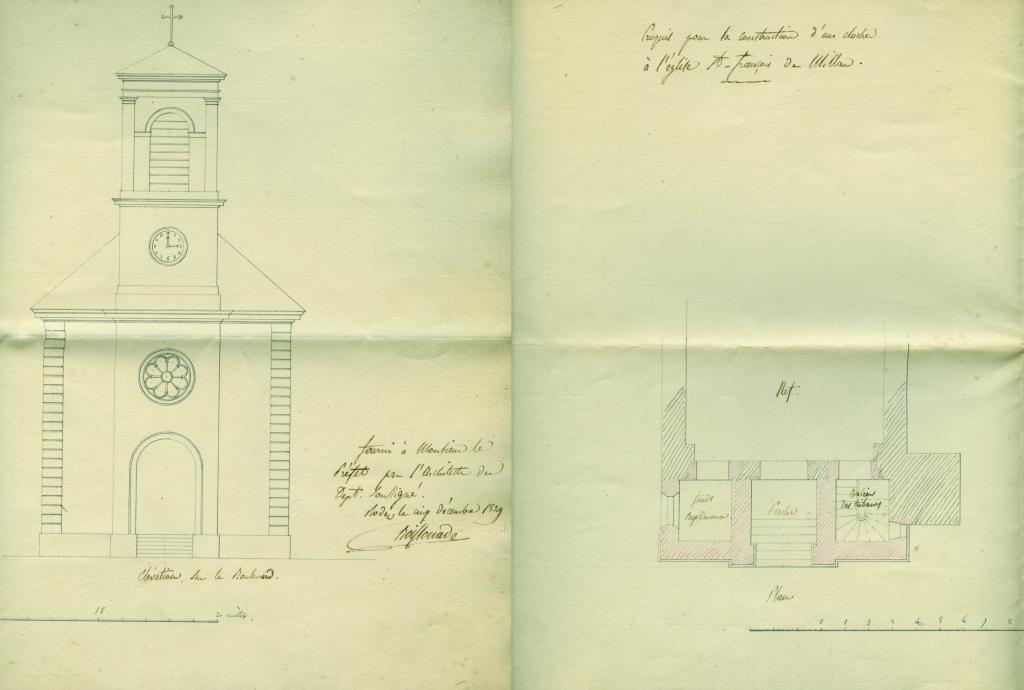 Fourni à Monsieur le
Préfet par l'Architecte du
Dept. soussigné.
Rodez, le cinq décembre 1829
Boissonade
Elévation sur le Boulevard.
15 20 mètres.
Croquis pour la construction d'un clocher
à l'église St-françois de Millau.
Nef.
fonds
Baptismaux
Porche
Escalier
des tribunes
Plan
0 1 2 3 4 5 6 7 8